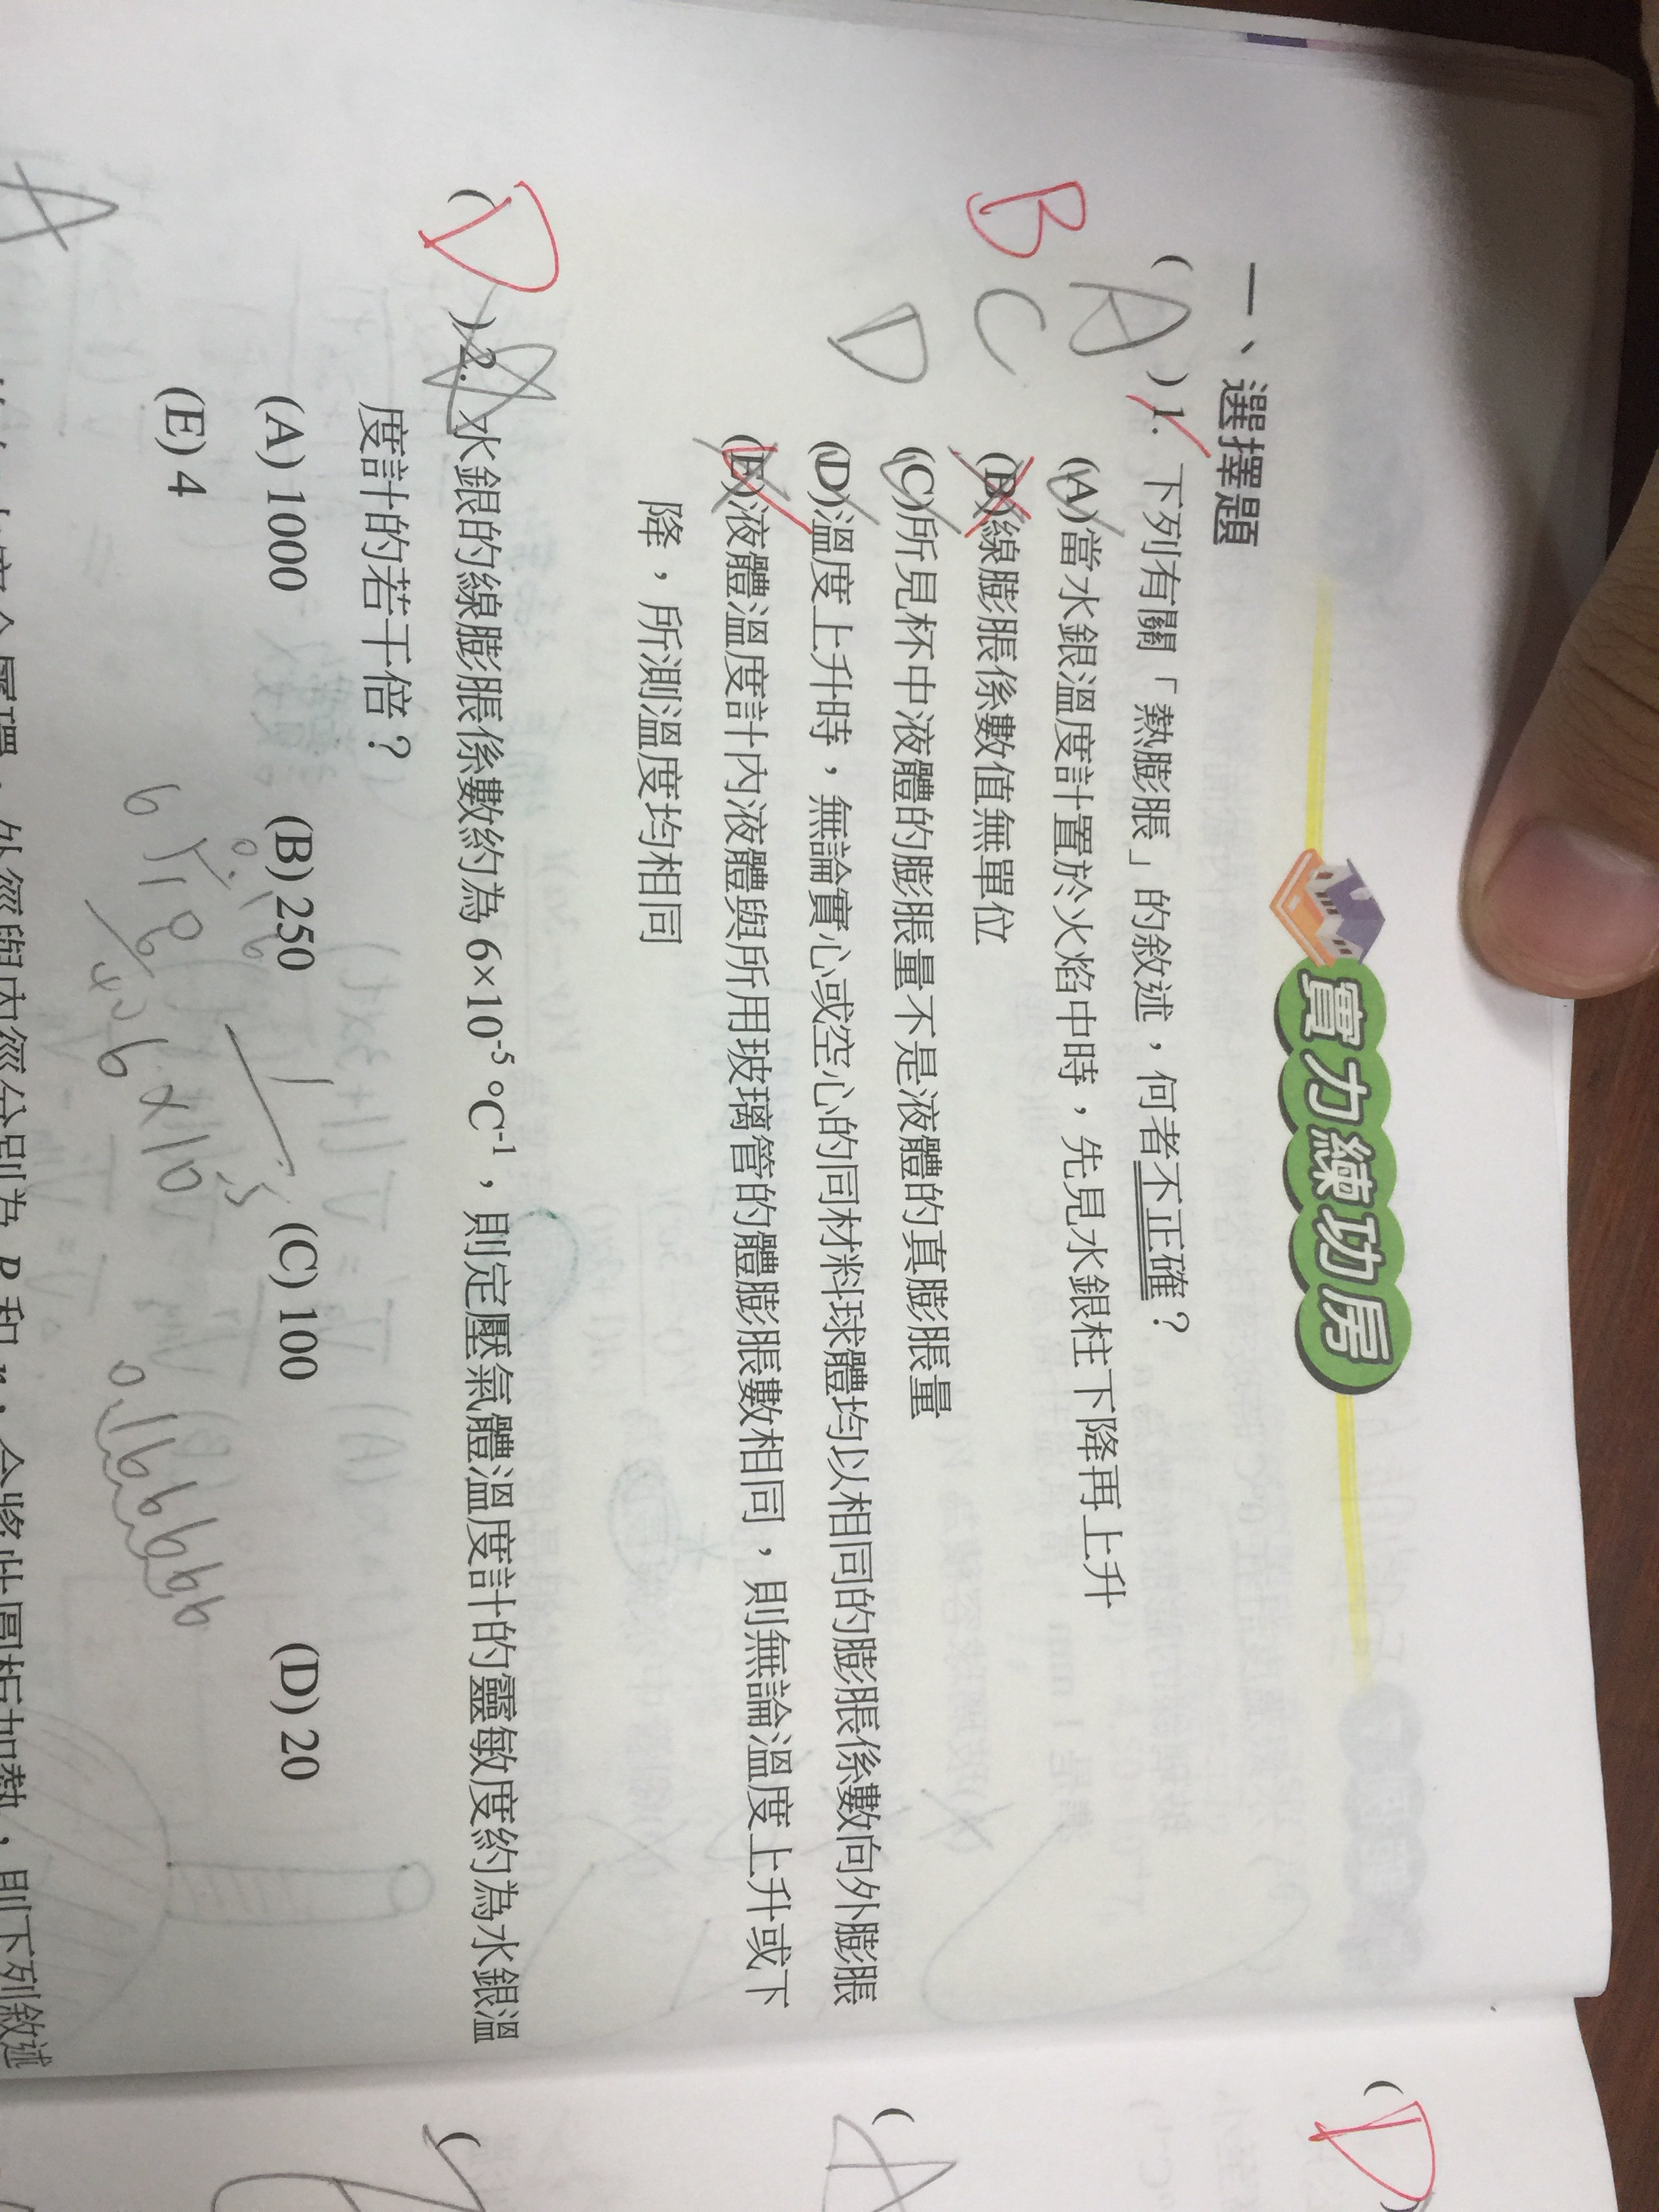 實力練功房
一、選擇題
B
( A ) 1. 下列有關「熱膨脹」的敘述，何者不正確？
C
(A)當水銀溫度計置於火焰中時，先見水銀柱下降再上升
(B)線膨脹係數值無單位
D
(C)所見杯中液體的膨脹量不是液體的真膨脹量
(D)溫度上升時，無論實心或空心的同材料球體均以相同的膨脹係數向外膨脹
(E)液體溫度計內液體與所用玻璃管的體膨脹數相同，則無論溫度上升或下
降，所測溫度均相同
( D ) 2. 水銀的線膨脹係數約為 6×10⁻⁵ °C⁻¹，則定壓氣體溫度計的靈敏度約為水銀溫
度計的若干倍？
(A) 1000 (B) 250 (C) 100 (D) 20
(E) 4
0.166666
A
外徑與內徑分別為 R 和 r，今將此圓柱加熱，則下列敘述
( D )
(
(